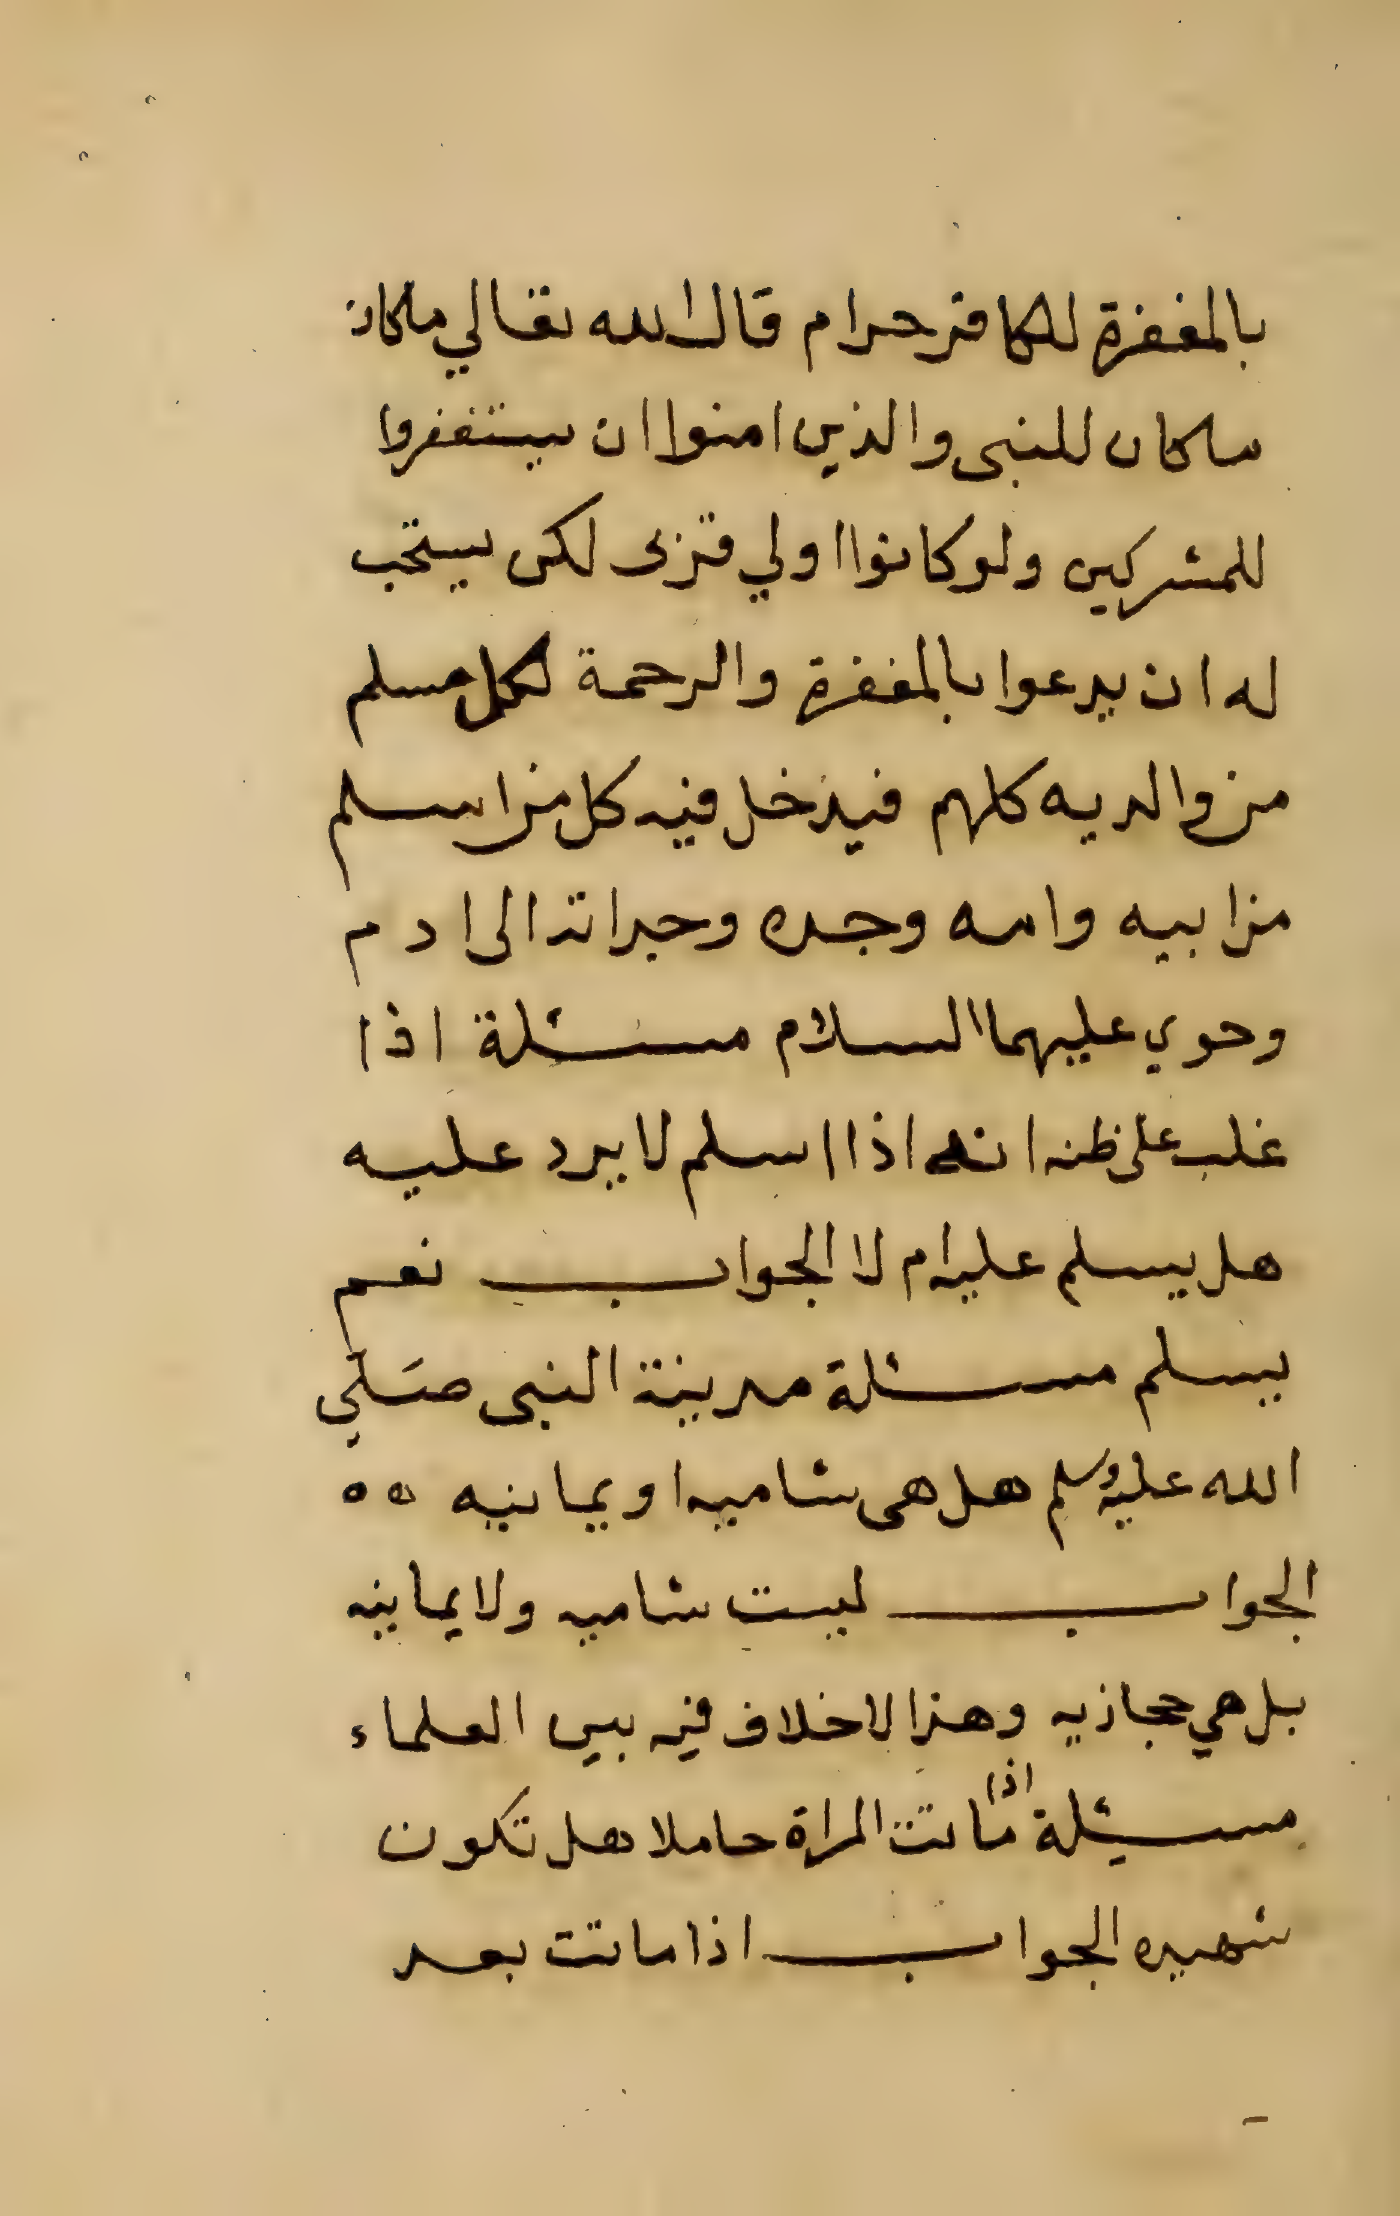 بالمغفرة للكافر حرام قال الله تعالي ماكان
ماكان للنبي والذين امنوا ان يستغفروا
للمشركين ولو كانوا اولي قربى لكن يستحب
له ان يدعوا بالمغفرة والرحمة لكل مسلم
من والديه كلهم فيدخل فيه كل من اسلم
من ابيه وامه وجده وجداته الى ادم
وحوي عليهما السلام مسئلة اذا
غلب على ظنه انه اذا اسلم لا يرد عليه
هل يسلم عليه ام لا الجواب نعم
يسلم مسئلة مدينة النبي صلي
الله عليه وسلم هل هي شاميه او يمانيه ه ه
الجواب ليست شاميه ولا يمانيه
بل هي حجازيه وهذا لا خلاف فيه بين العلماء
مسئلة اذا ماتت المراة حاملا هل تكون
شهيده الجواب اذا ماتت بعد